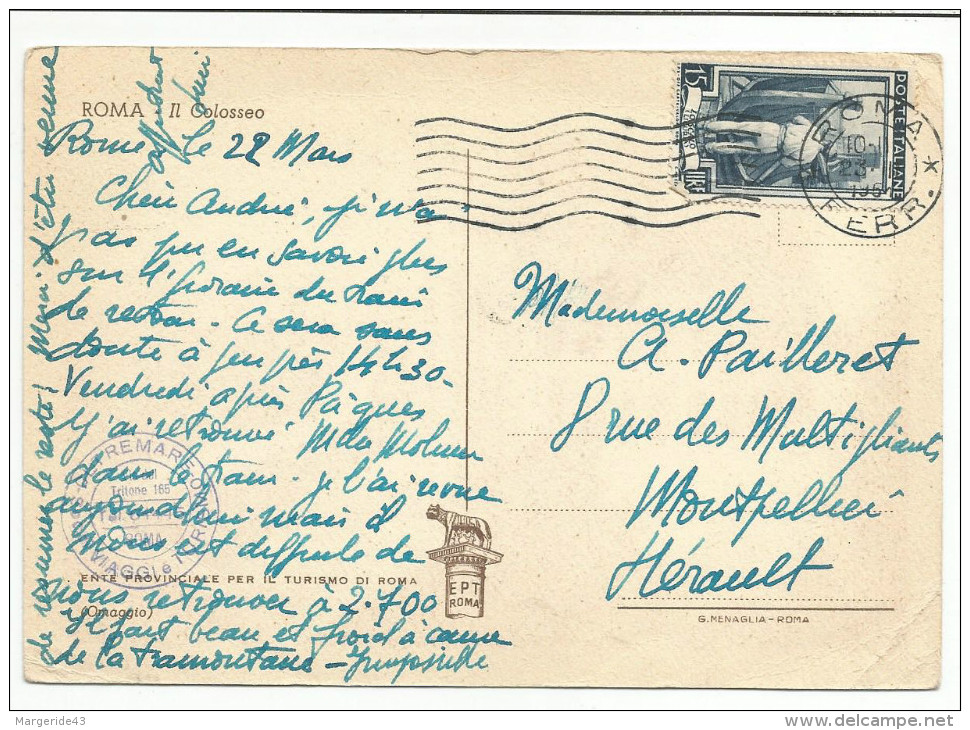 ROMA - Il Colosseo
Rome, le 22 Mars
Chère André, je n'ai
pas pu en savoir plus
sur l'horaire du train
de retour. Ce sera sans
doute à peu près 14h30-
Vendredi après Pâques
J'ai retrouvé Mde
dans le train. je l'ai revue
aujourd'hui mais il
nous est difficile de
nous retrouver à 2.700
Il fait beau et froid à cause
de la tramontane - Impossible
de résumer le reste! Merci d'être venue
ENTE PROVINCIALE PER IL TURISMO DI ROMA
(Omaggio)
Tritone 165
ROMA
VIAGGI e
EPT
ROMA
15
POSTE ITALIANE
ROMA
FERR.
10-
23
195
Mademoiselle
A. Pailleret
8 rue des Multipliants
Montpellier
Hérault
G. MENAGLIA - ROMA
Margeride43
www.delcampe.net